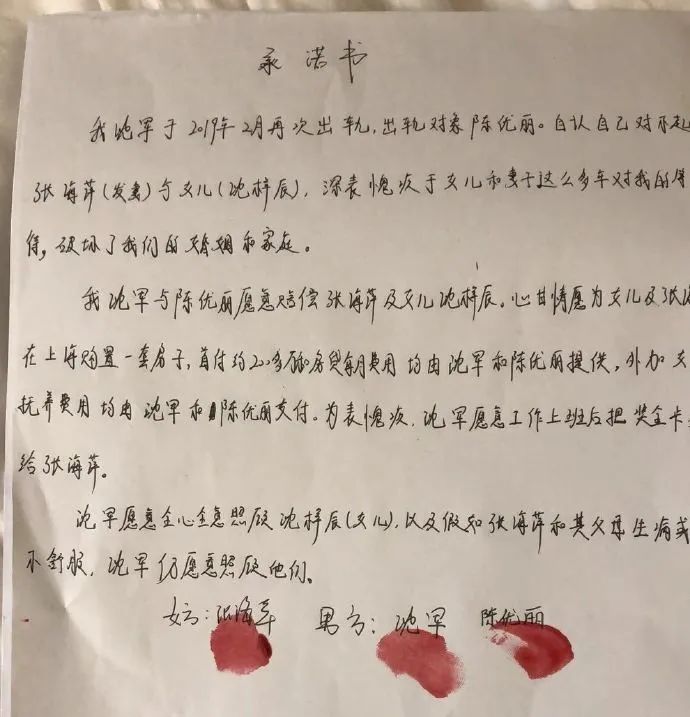 承诺书
我沈军于2019年2月再次出轨,出轨对象陈优丽。自认自己对不起
张海萍(发妻)与女儿(沈梓辰),深表愧疚于女儿和妻子这么多年对我的等
待,破坏了我们的婚姻和家庭。
我沈军与陈优丽愿意赔偿张海萍及女儿沈梓辰。心甘情愿为女儿及张
在上海购置一套房子,首付约200多万和房贷每月费用均由沈军和陈优丽提供,外加女
抚养费用均由沈军和陈优丽支付。为表愧疚,沈军愿意工作上班后把奖金卡
给张海萍。
沈军愿意全心全意照顾沈梓辰(女儿),以及假如张海萍和其父母生病或
不舒服,沈军仍愿意照顾他们。
女方:张海萍 男方:沈军 陈优丽